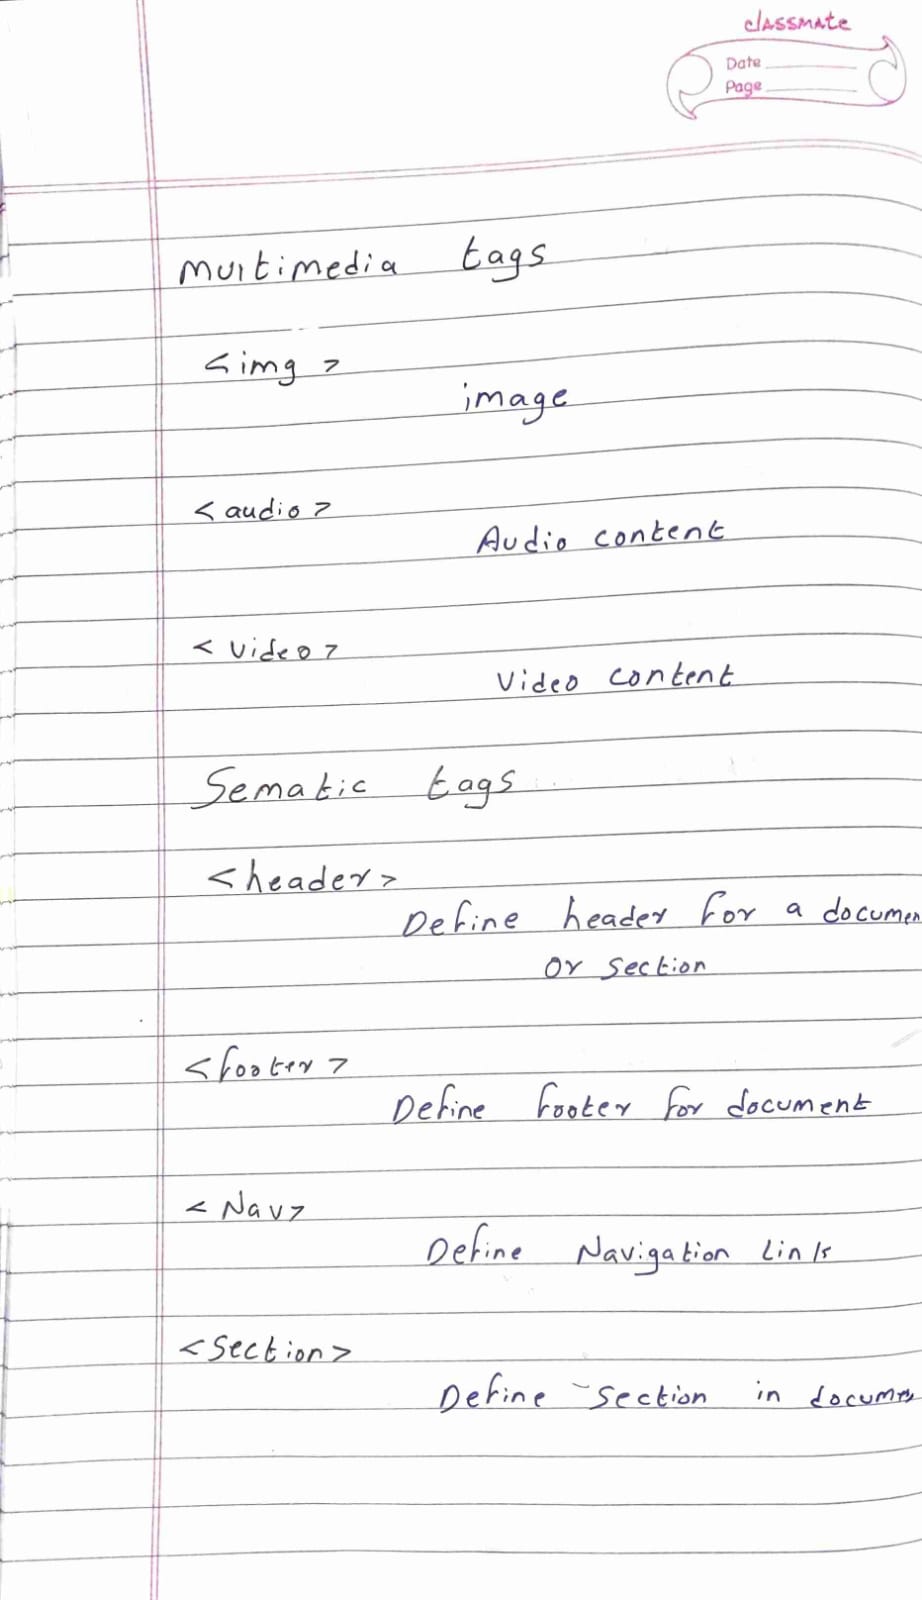 classmate
Date
Page
Multimedia tags
<img>
image
<audio>
Audio content
<video>
Video content
Sematic tags
<header>
Define header for a documen
or section
<footer>
Define footer for document
<Nav>
Define Navigation Link
<section>
Define section in docume